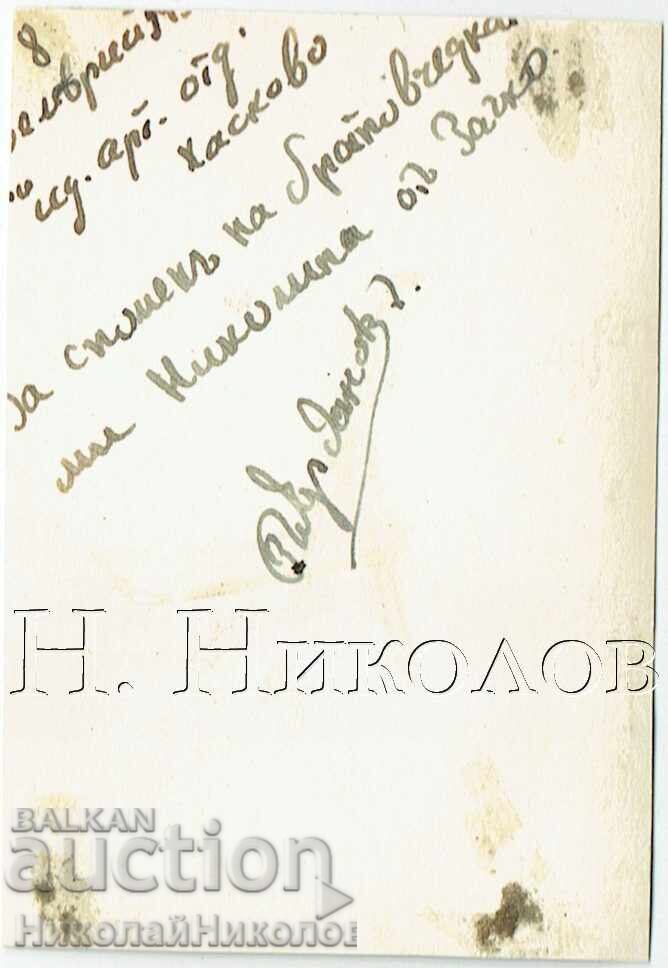 8
ид. арт. отд.
Хасково
За споменъ на братовчедка
ми Николина отъ Зачко
Н. Николов
BALKAN
auction
НиколайНиколов